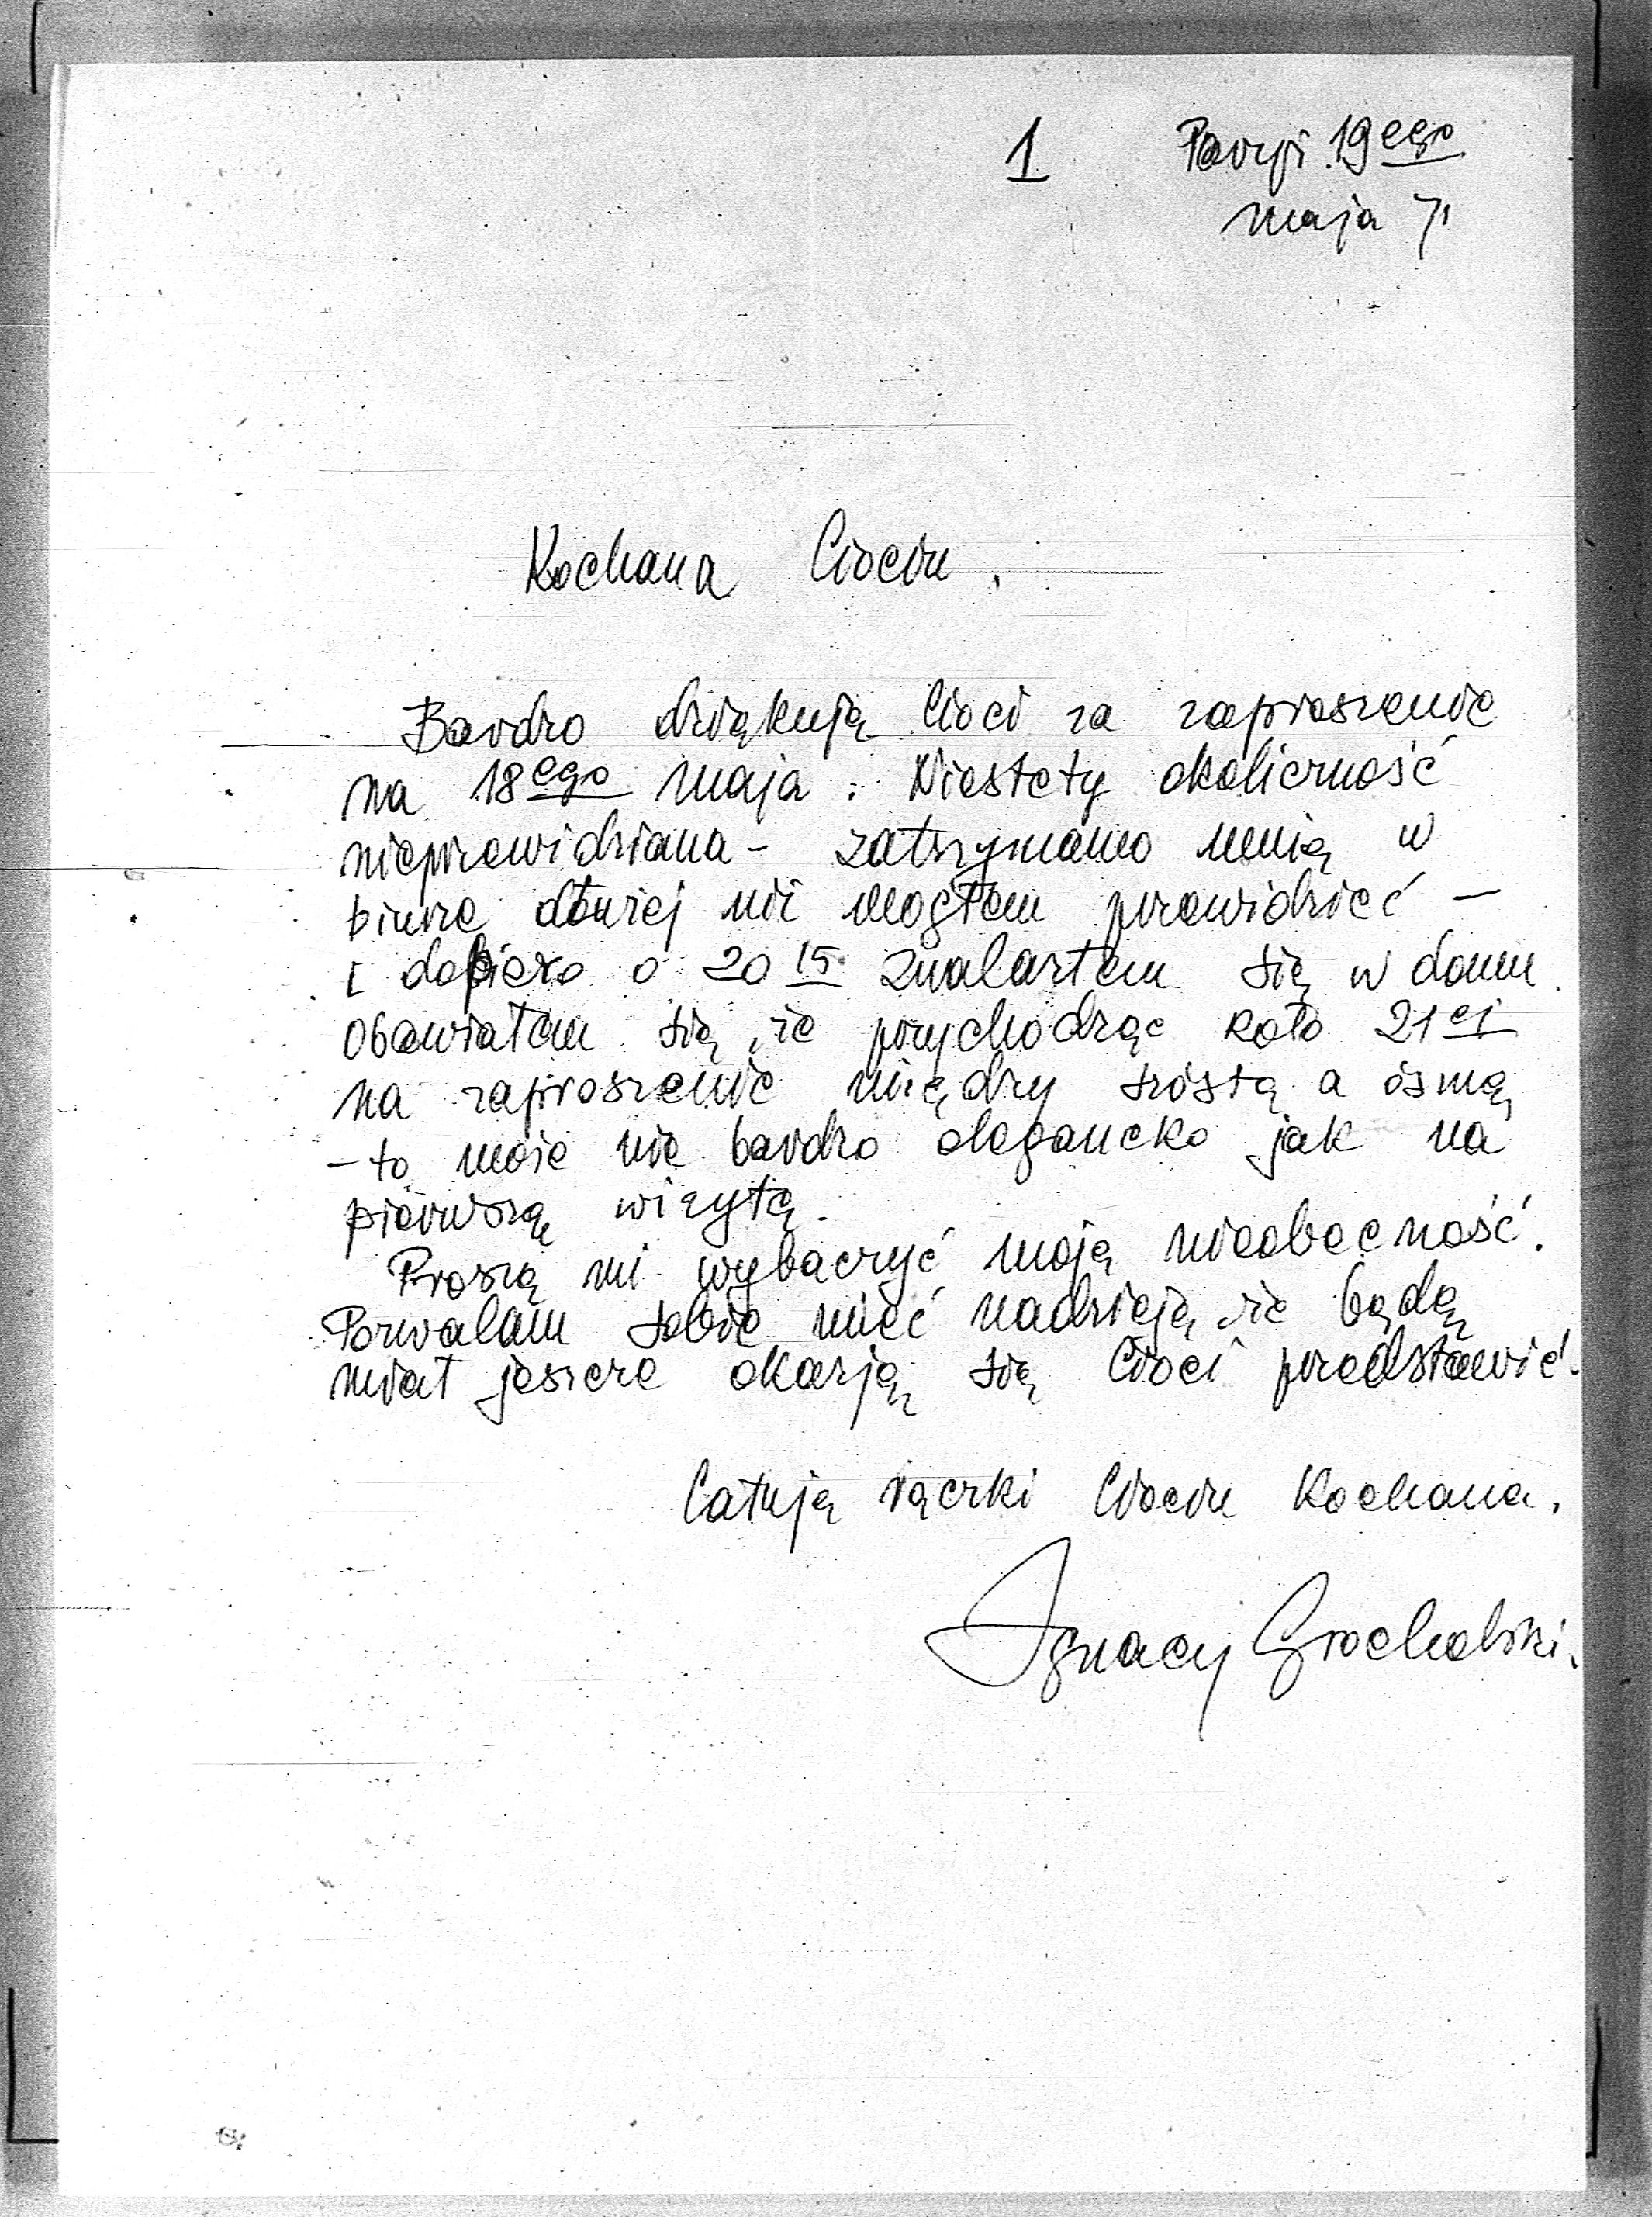 1 Paryż 19ego
maja 71
Kochana Ciociu.
Bardzo dziękuję Cioci za zaproszenie
na 18ego maja. Niestety okoliczność
nieprzewidziana – zatrzymano mnię w
biurze dłużej niż mogłem przewidzieć –
i dopiero o 20 15 znalazłem się w domu.
Obawiałem się, że przychodząc koło 21ej
na zaproszenie między szóstą a ósmą,
– to może nie bardzo elegancko jak na
pierwszą wizytę.
Proszę mi wybaczyć moją nieobecność.
Pozwalam sobie mieć nadzieję, że będę
miał jeszcze okazję się Cioci przedstawić.
Całuję rączki Ciociu Kochana.
Ignacy Grocholski.